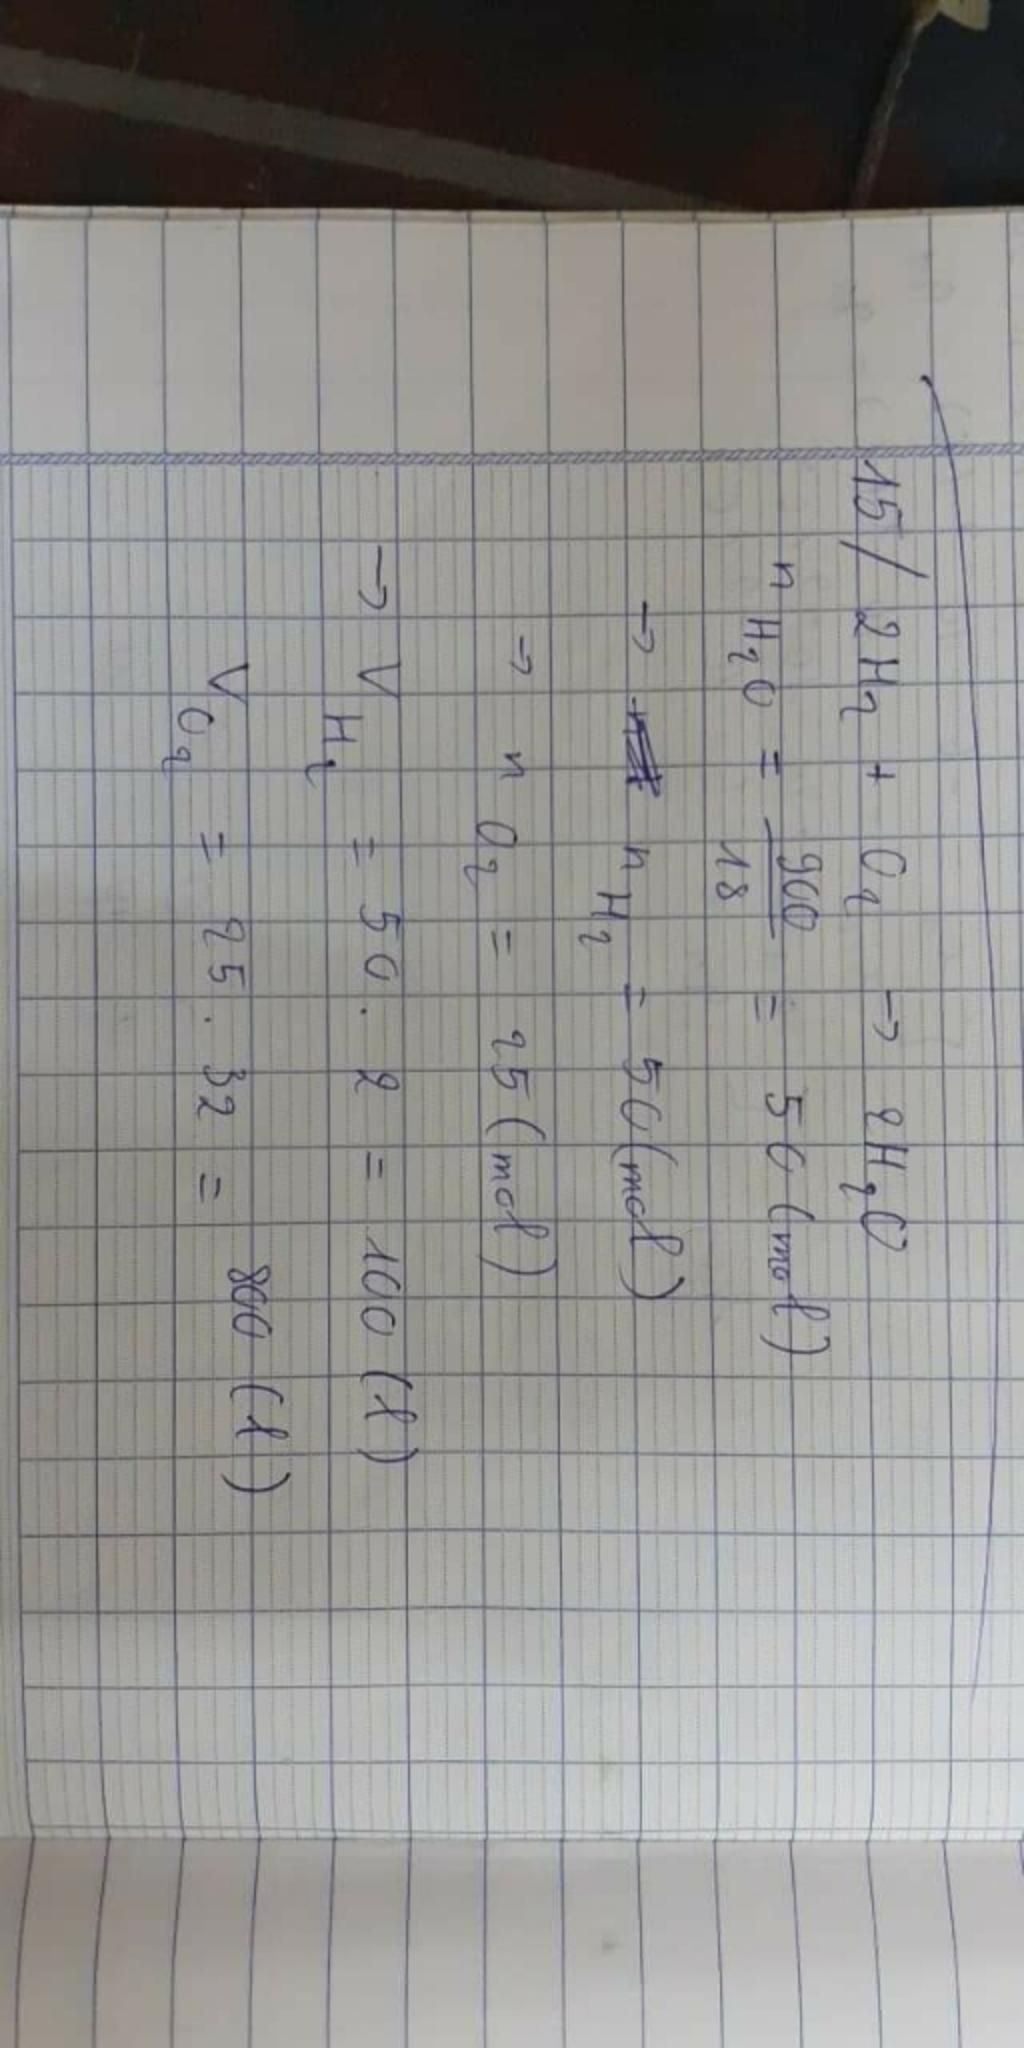 15/ 2H₂ + O₂ → 2H₂O
n H₂O = 900/18 = 50 (mol)
→ n H₂ = 50 (mol)
→ n O₂ = 25 (mol)
→ V H₂ = 50 . 2 = 100 (l)
V O₂ = 25 . 32 = 800 (l)